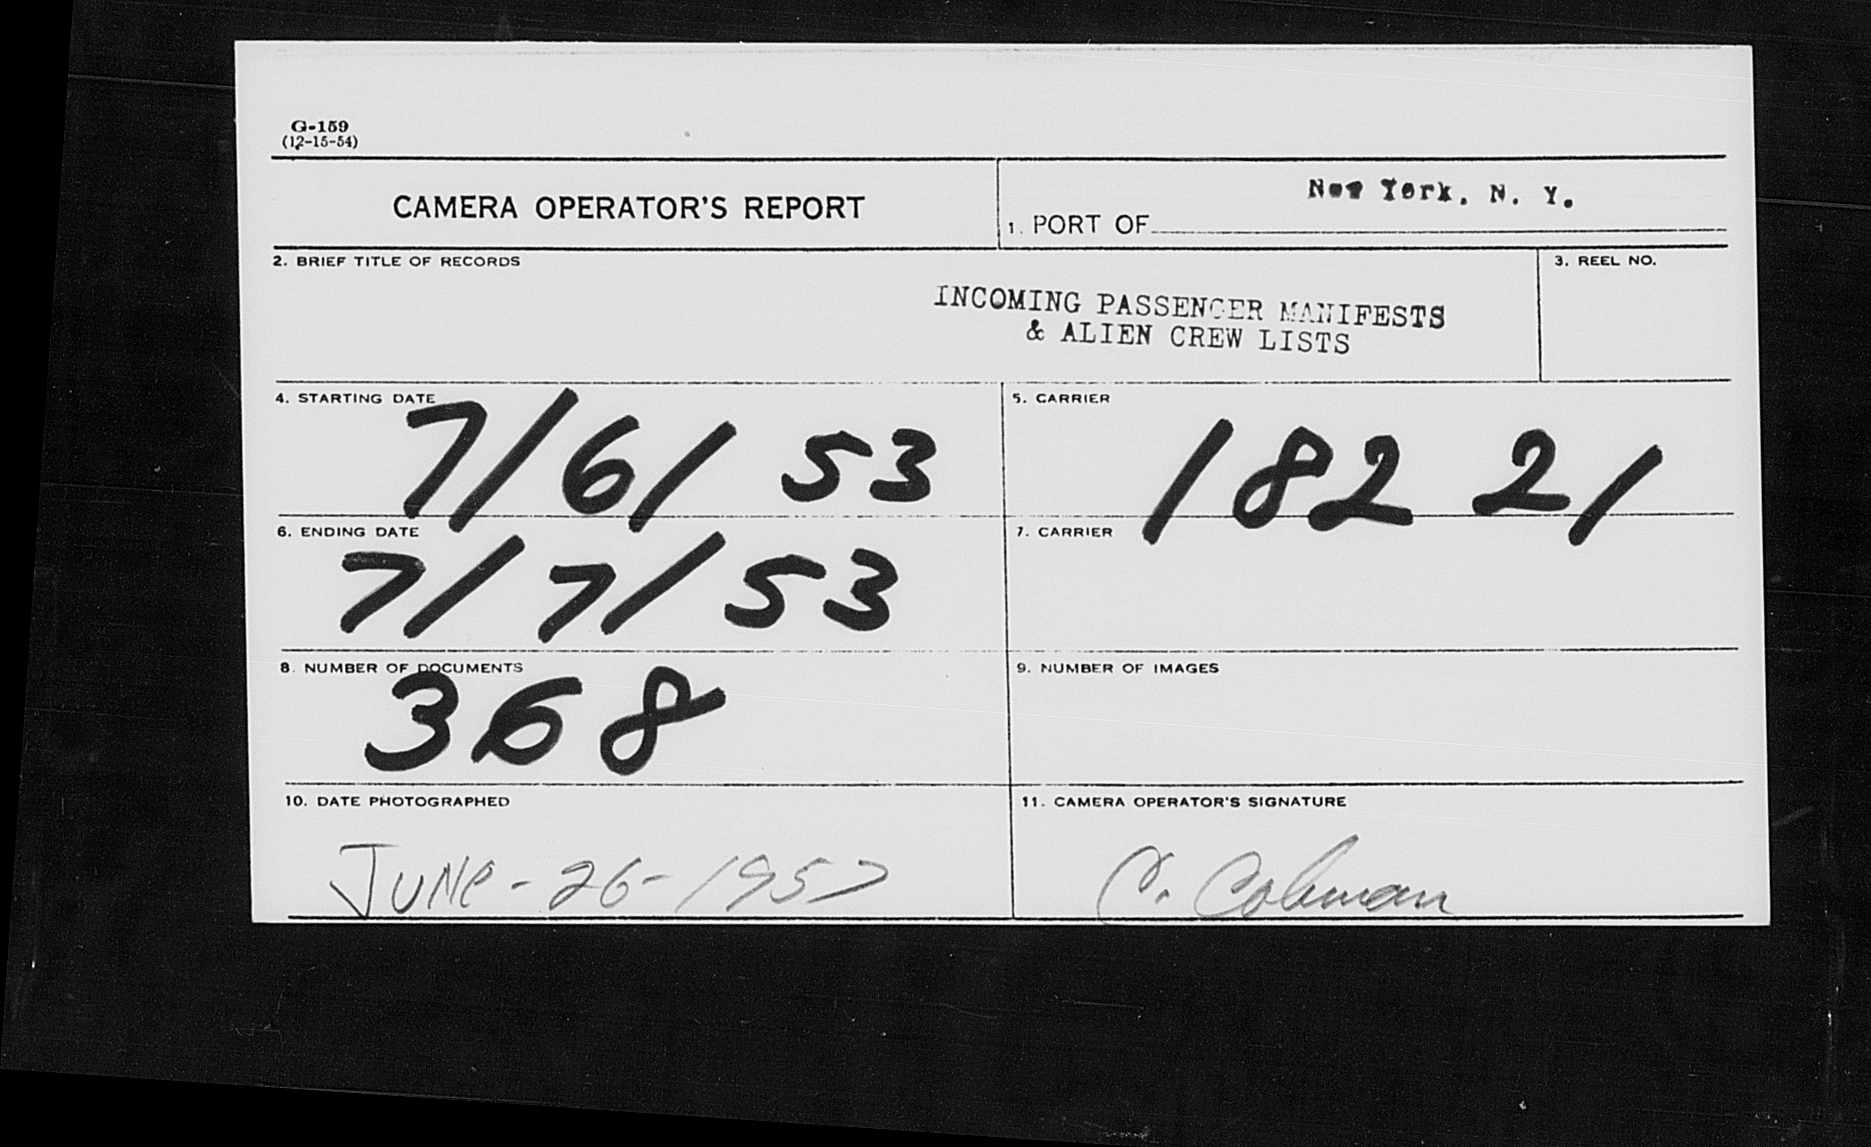 G-159
(12-15-54)
CAMERA OPERATOR'S REPORT
1. PORT OF New York, N. Y.
2. BRIEF TITLE OF RECORDS
INCOMING PASSENGER MANIFESTS
& ALIEN CREW LISTS
3. REEL NO.
4. STARTING DATE
7/6/53
5. CARRIER
182 21
6. ENDING DATE
7/7/53
7. CARRIER
8. NUMBER OF DOCUMENTS
368
9. NUMBER OF IMAGES
10. DATE PHOTOGRAPHED
JUNE-26-1957
11. CAMERA OPERATOR'S SIGNATURE
C. Coleman